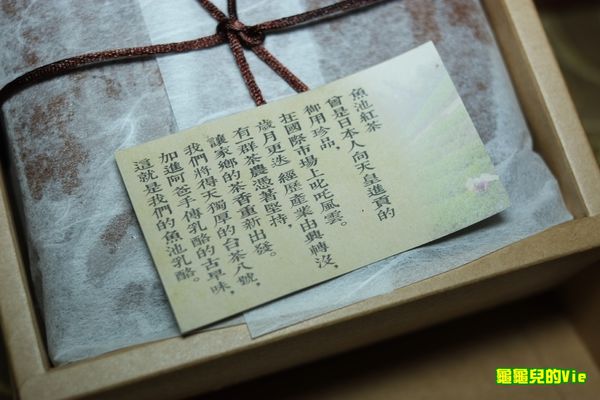 魚池紅茶
曾是日本人向天皇進貢的
御用珍品，
在國際市場上叱吒風雲。
歲月更迭 經歷產業由興轉沒，
有一群茶農憑著堅持，
讓家鄉的茶香重新出發。
我們將得天獨厚的台茶八號，
加進阿爸手傳乳酪的古早味，
這就是我們的魚池乳酪。
龜龜兒的Vie